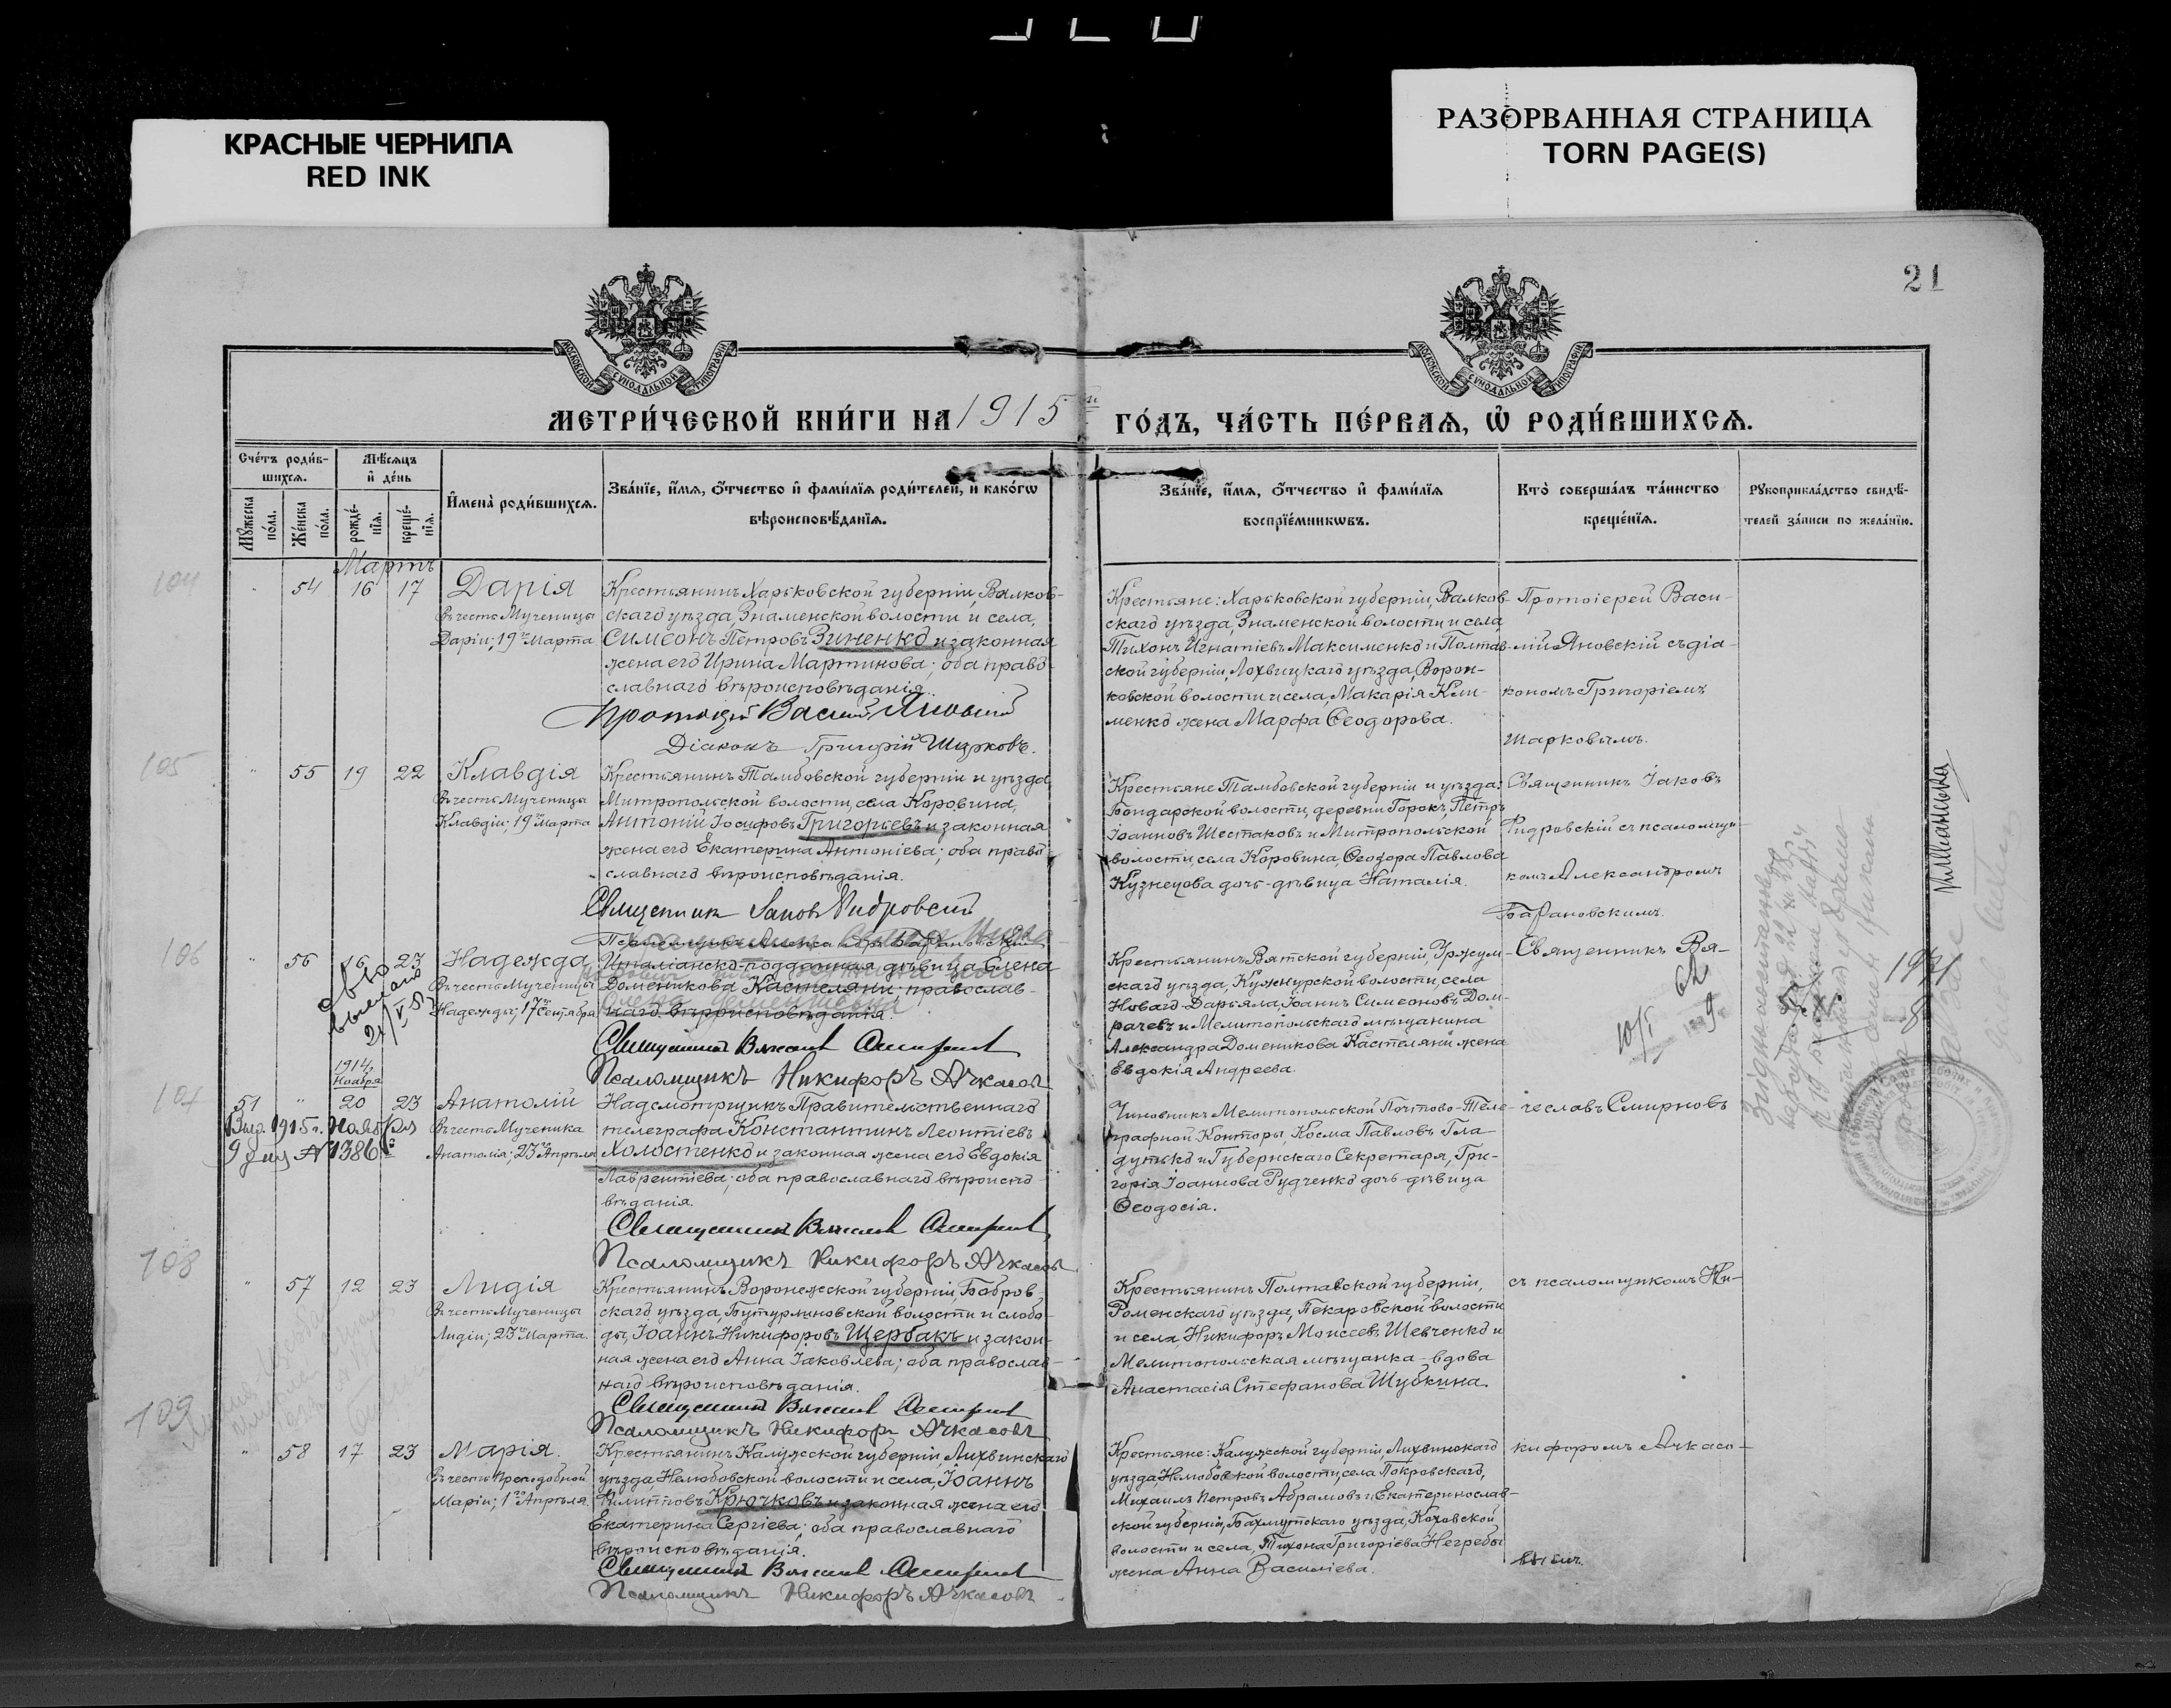 КРАСНЫЕ ЧЕРНИЛА
RED INK
РАЗОРВАННАЯ СТРАНИЦА
TORN PAGE(S)
21
МОСКОВСКОЙ СѴНОДАЛЬНОЙ ТИПОГРАФИИ
МОСКОВСКОЙ СѴНОДАЛЬНОЙ ТИПОГРАФИИ
МЕТРИ́ЧЕСКОЙ КНИ́ГИ НА 1915 й ГО́ДЪ, ЧА́СТЬ ПЕ́РВАѦ, Ѡ҆ РОДИ́ВШИХСѦ.
Сче́тъ роди́в-
шихсѧ.
Мѣ́сѧцъ
и҆ де́нь
Мꙋ́жеска по́ла.
Же́нска по́ла.
рожде́-нїѧ.
креще́-нїѧ.
И҆мена̀ роди́вшихсѧ.
Зва́нїе, и҆́мѧ, ѻ҆́тчество и҆ фами́лїѧ роди́телей, и҆ како́гѡ
вѣроисповѣ́данїѧ.
Зва́нїе, и҆́мѧ, ѻ҆́тчество и҆ фами́лїѧ
воспрїе́мникѡвъ.
Кто̀ соверша́лъ та́инство
креще́нїѧ.
Рꙋкоприкла́дство свидѣ́-
телей за́писи по жела́нїю.
Мартъ
104
" 54 16 17 Дарія
Въ честь Мученицы
Даріи; 19го Марта
Крестьянинъ Харьковской губерніи, Валков-
скаго уѣзда, Знаменской волости и села,
Симеонъ Петровъ Зиненко и законная
жена его Ирина Мартинова; оба право-
славнаго вѣроисповѣданія.
Протоіерей Василій Яновскій
Діаконъ Григорій Шарковъ.
Крестьяне: Харьковской губерніи, Валков-
скаго уѣзда, Знаменской волости и села,
Тихонъ Игнатіевъ Максименко и Полтав-
ской губерніи, Лохвицкаго уѣзда, Ворон-
ковской волости и села, Макарія Кли-
менко жена Марфа Ѳеодорова.
Протоіерей Васи-
лій Яновскій съ діа-
кономъ Григоріемъ
Шарковымъ.
105
" 55 19 22 Клавдія
Въ честь Мученицы
Клавдіи; 19го Марта
Крестьянинъ Тамбовской губерніи и уѣзда,
Митропольской волости, села Коровина,
Антоній Іосифовъ Григорьевъ и законная
жена его Екатерина Антоніева; оба право-
славнаго вѣроисповѣданія.
Псаломщикъ Александръ Барановскій
Крестьяне Тамбовской губерніи и уѣзда:
Бондарской волости, деревни Горокъ, Петръ
Іоанновъ Шестаковъ и Митропольской
волости, села Коровина, Ѳеодора Павлова
Кузнецова дочь-дѣвица Наталія.
Священникъ Іаковъ
съ псаломщи-
комъ Александромъ
Барановскимъ.
106
" 56 16 23 Надежда
Въ честь Мученицы
Надежды; 17го Сентября
Италіанско-подданная дѣвица Елена
Доменикова Кастеляни православ-
наго вѣроисповѣданія
Священникъ Вячеславъ Смирновъ
Псаломщикъ Никифоръ Ачкасовъ
Крестьянинъ Вятской губерніи, Уржум-
скаго уѣзда, Кужнурской волости, села
Новаго-Дарьяла, Іоаннъ Симеоновъ Дом-
рачевъ и Мелитопольскаго мѣщанина
Александра Доменикова Кастеляни жена
Евдокія Андреева.
Священникъ Вя-
107
1914г.
Ноября
51 " 20 23 Анатолій
Выд. 1915 г. Ноября
9 дня № 1386
Въ честь Мученика
Анатолія; 23го Апрѣля
Надсмотрщикъ Правительственнаго
телеграфа Константинъ Леонтіевъ
Холостенко и законная жена его Евдокія
Лаврентіева; оба православнаго вѣроиспо-
вѣданія.
Священникъ Вячеславъ Смирновъ
Псаломщикъ Никифоръ Ачкасовъ
Чиновникъ Мелитопольской Почтово-Теле-
графной Конторы, Косма Павловъ Гла-
дутько и Губернскаго Секретаря, Гри-
горія Іоаннова Рудченко дочь-дѣвица
Ѳеодосія.
чеславъ Смирновъ
108
" 57 12 23 Лидія
Въ честь Мученицы
Лидіи; 23го Марта.
Крестьянинъ Воронежской губерніи, Бобров-
скаго уѣзда, Бутурлиновской волости и слобо-
ды, Іоаннъ Никифоровъ Щербакъ и закон-
ная жена его Анна Іаковлева; оба православ-
наго вѣроисповѣданія.
Священникъ Вячеславъ Смирновъ
Псаломщикъ Никифоръ Ачкасовъ
Крестьянинъ Полтавской губерніи,
Роменскаго уѣзда, Пекаровской волости
и села, Никифоръ Моисеевъ Шевченко и
Мелитопольская мѣщанка-вдова
Анастасія Стефанова Шубкина.
съ псаломщикомъ Ни-
109
" 58 17 23 Марія.
Въ честь Преподобной
Маріи; 1го Апрѣля.
Крестьянинъ Калужской губерніи, Лихвинскаго
уѣзда, Нелюбовской волости и села, Іоаннъ
Филипповъ Крючковъ и законная жена его
Екатерина Сергіева; оба православнаго
вѣроисповѣданія.
Священникъ Вячеславъ Смирновъ
Псаломщикъ Никифоръ Ачкасовъ
Крестьяне: Калужской губерніи, Лихвинскаго
уѣзда, Нелюбовской волости, села Покровскаго,
Михаилъ Петровъ Абрамовъ и Екатеринослав-
ской губерніи, Бахмутскаго уѣзда,
волости и села, Тихона Григоріева Негребы
жена Анна Василіева.
кифоромъ Ачкасо-
вымъ.